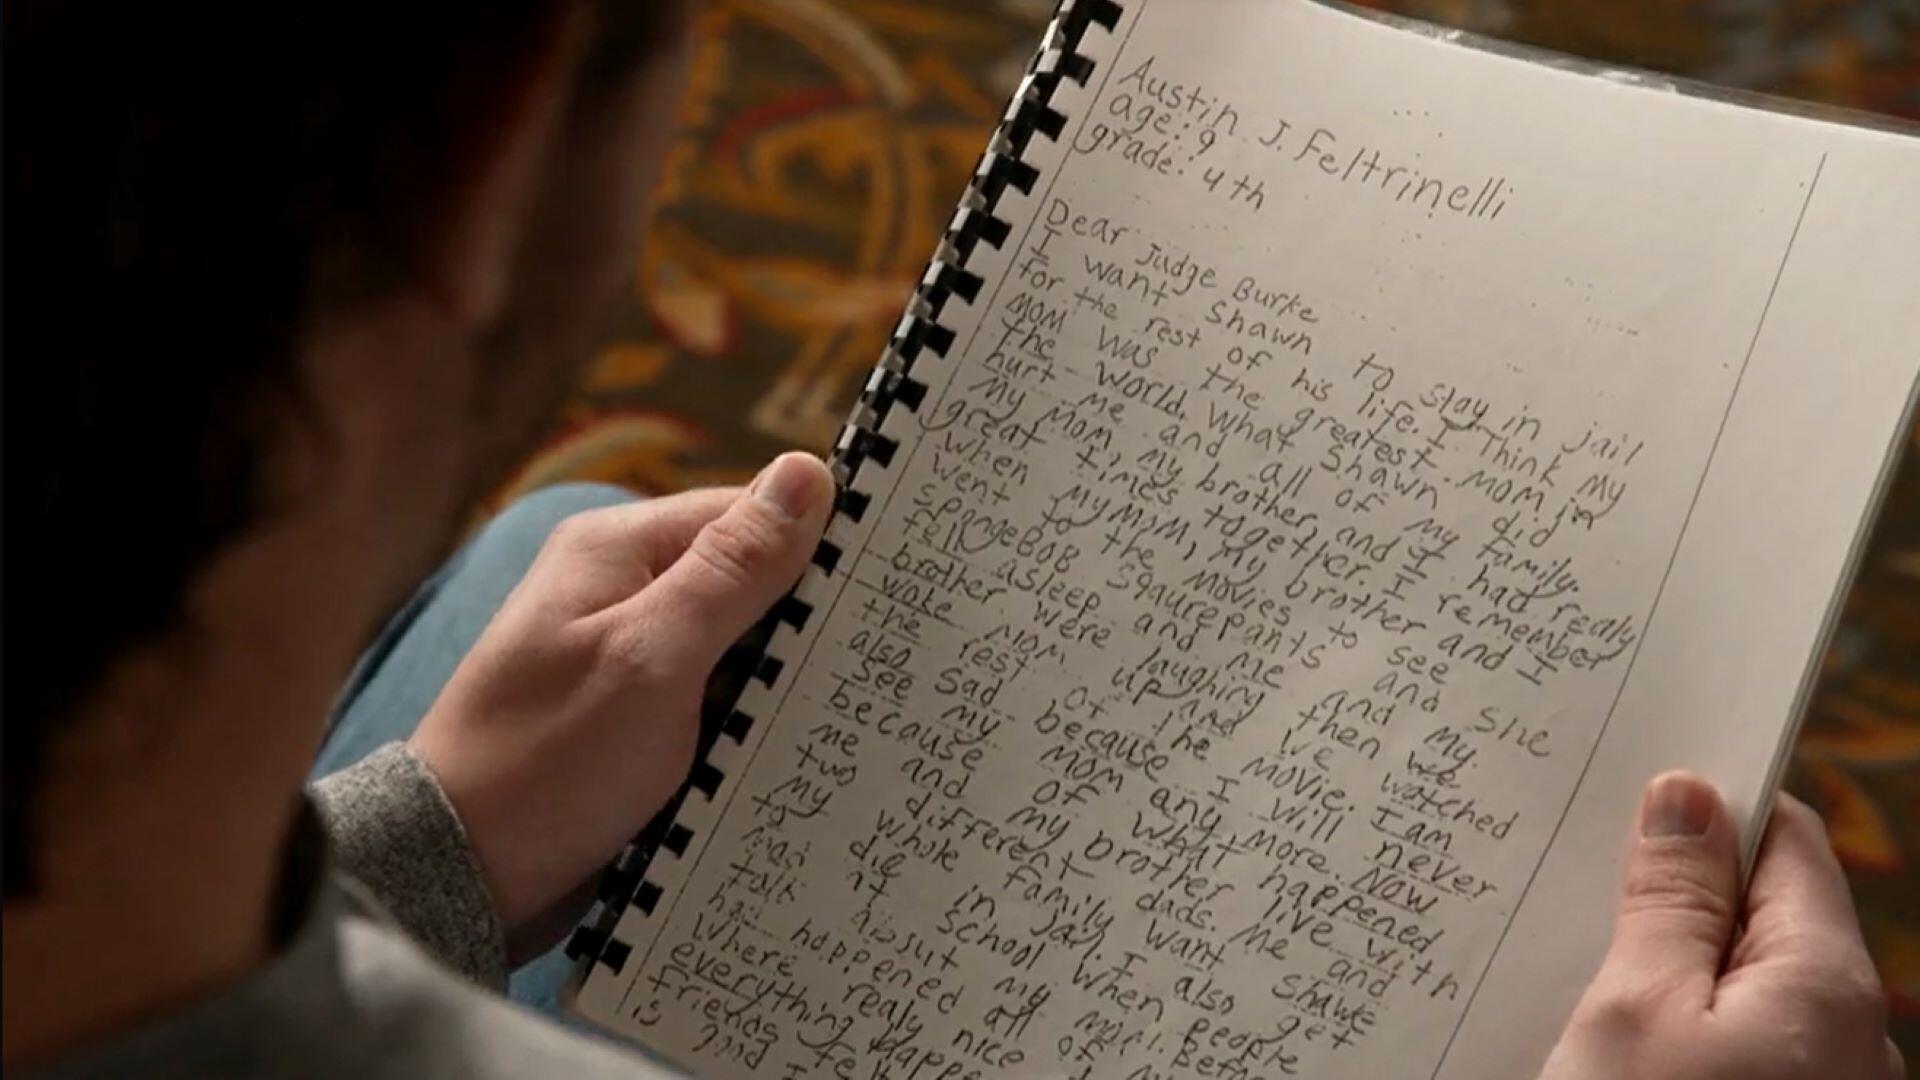 Austin J. Feltrinelli
age: 9
grade: 4th
Dear Judge Burke
I want Shawn to stay in jail
for the rest of his life. I Think my
mom was the greatest mom in
the world. What Shawn did
hurt me and all of my family.
My mom, my brother, and I had realy
great times together. I remember
when my mom, my brother and I
went to the movies to see
SpongeBOB Sqaurepants and she
fell asleep and me and my
brother were laughing then we
woke mom up and we watched
the rest of the movie. I am
also sad because I will never
see my mom any more. Now
because of what happened
me and my brother live with
two different dads. Me and
my whole family want Shawn
to die in jail. I also get
mad at school when people
talk about my mom. Before
had happened all of
where realy nice
everything happe
friends fe
is